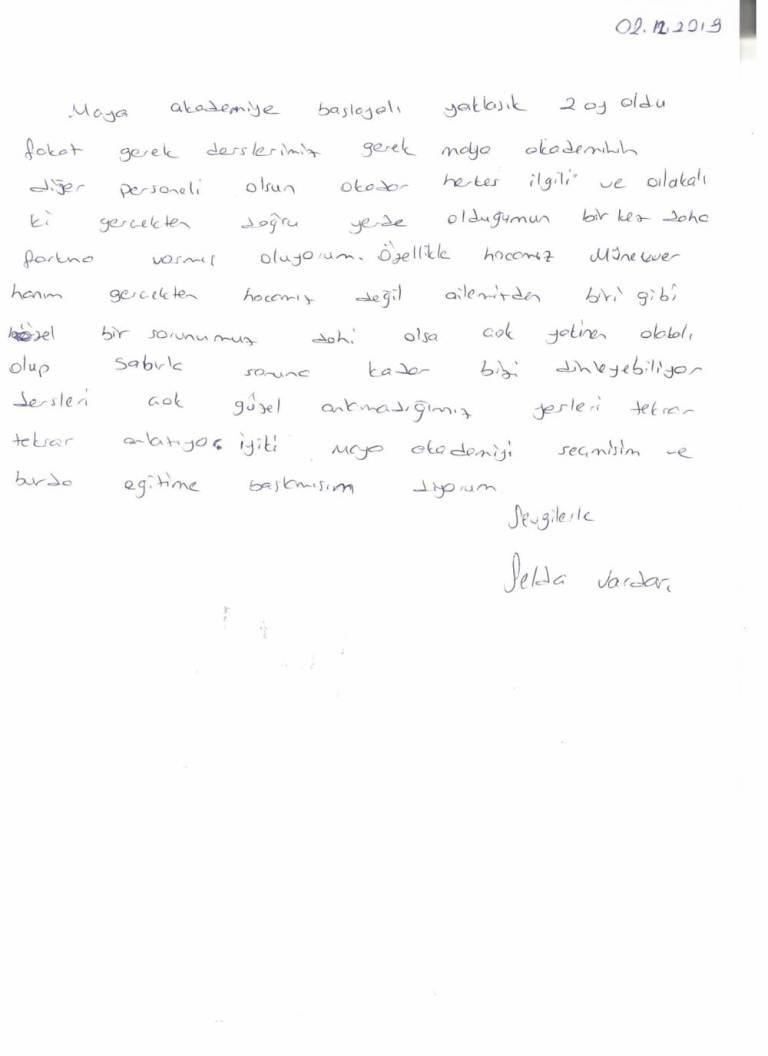 02.12.2019
Maya akademiye başlayalı yaklaşık 2 ay oldu
fakat gerek derslerimiz gerek maya akademinin
diğer personeli olsun okadar herkes ilgili ve alakalı
ki gercekten doğru yerde olduğumun bir kez daha
farkına varmış oluyorum. Özellikle hocamız Münevver
hanım gercekten hocamız değil ailemizden biri gibi
özel bir sorunumuz dahi olsa cok yakinen alakalı
olup sabırla sonuna kadar bizi dinleyebiliyor
dersleri cok güzel anlamadığımız yerleri tekrar
tekrar anlatıyor iyiki maya akademiyi seçmişim ve
burda eğitime başlamışım diyorum
Sevgilerle
Selda Vardar